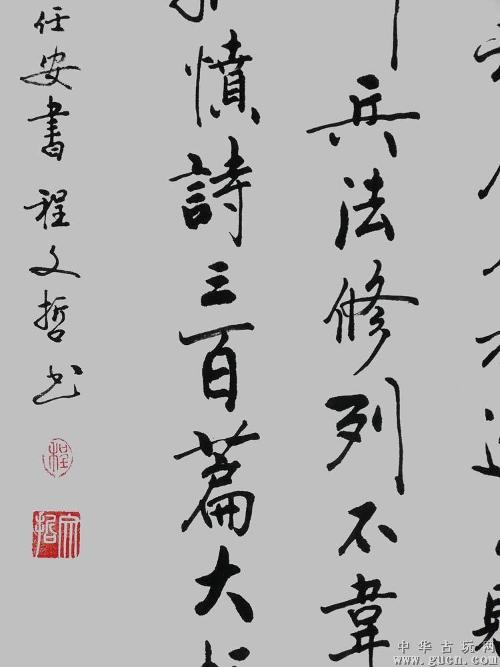 兵法修列不韋
憤詩三百篇大
任安書 程文哲书
程
文哲
中华古玩网
www.gucn.com